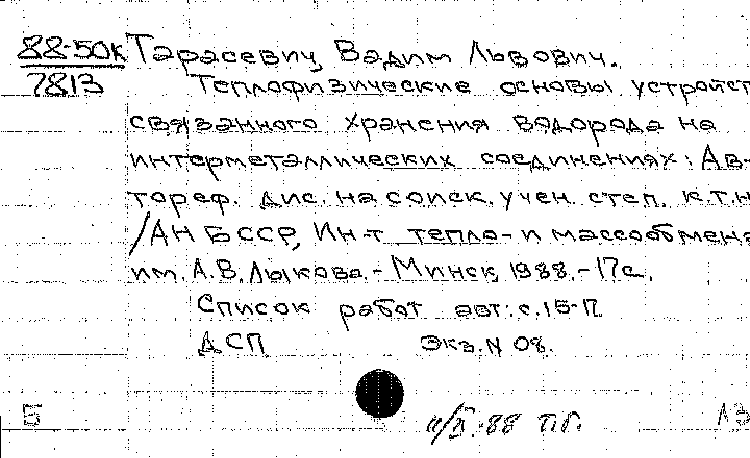 88-50к Тарасевич, Вадим Львович.
7813 Теплофизические основы устройст
связанного хранения водорода на
интерметаллических соединениях: Ав-
тореф. дис. на соиск. учен. степ. к.т.н
/АН БССР, Ин-т тепло- и массообмена
им. А.В. Лыкова. - Минск, 1988. - 17с.
Список работ авт.: с.15-17
ДСП Экз. N 08.
Б 88 Т.Г.